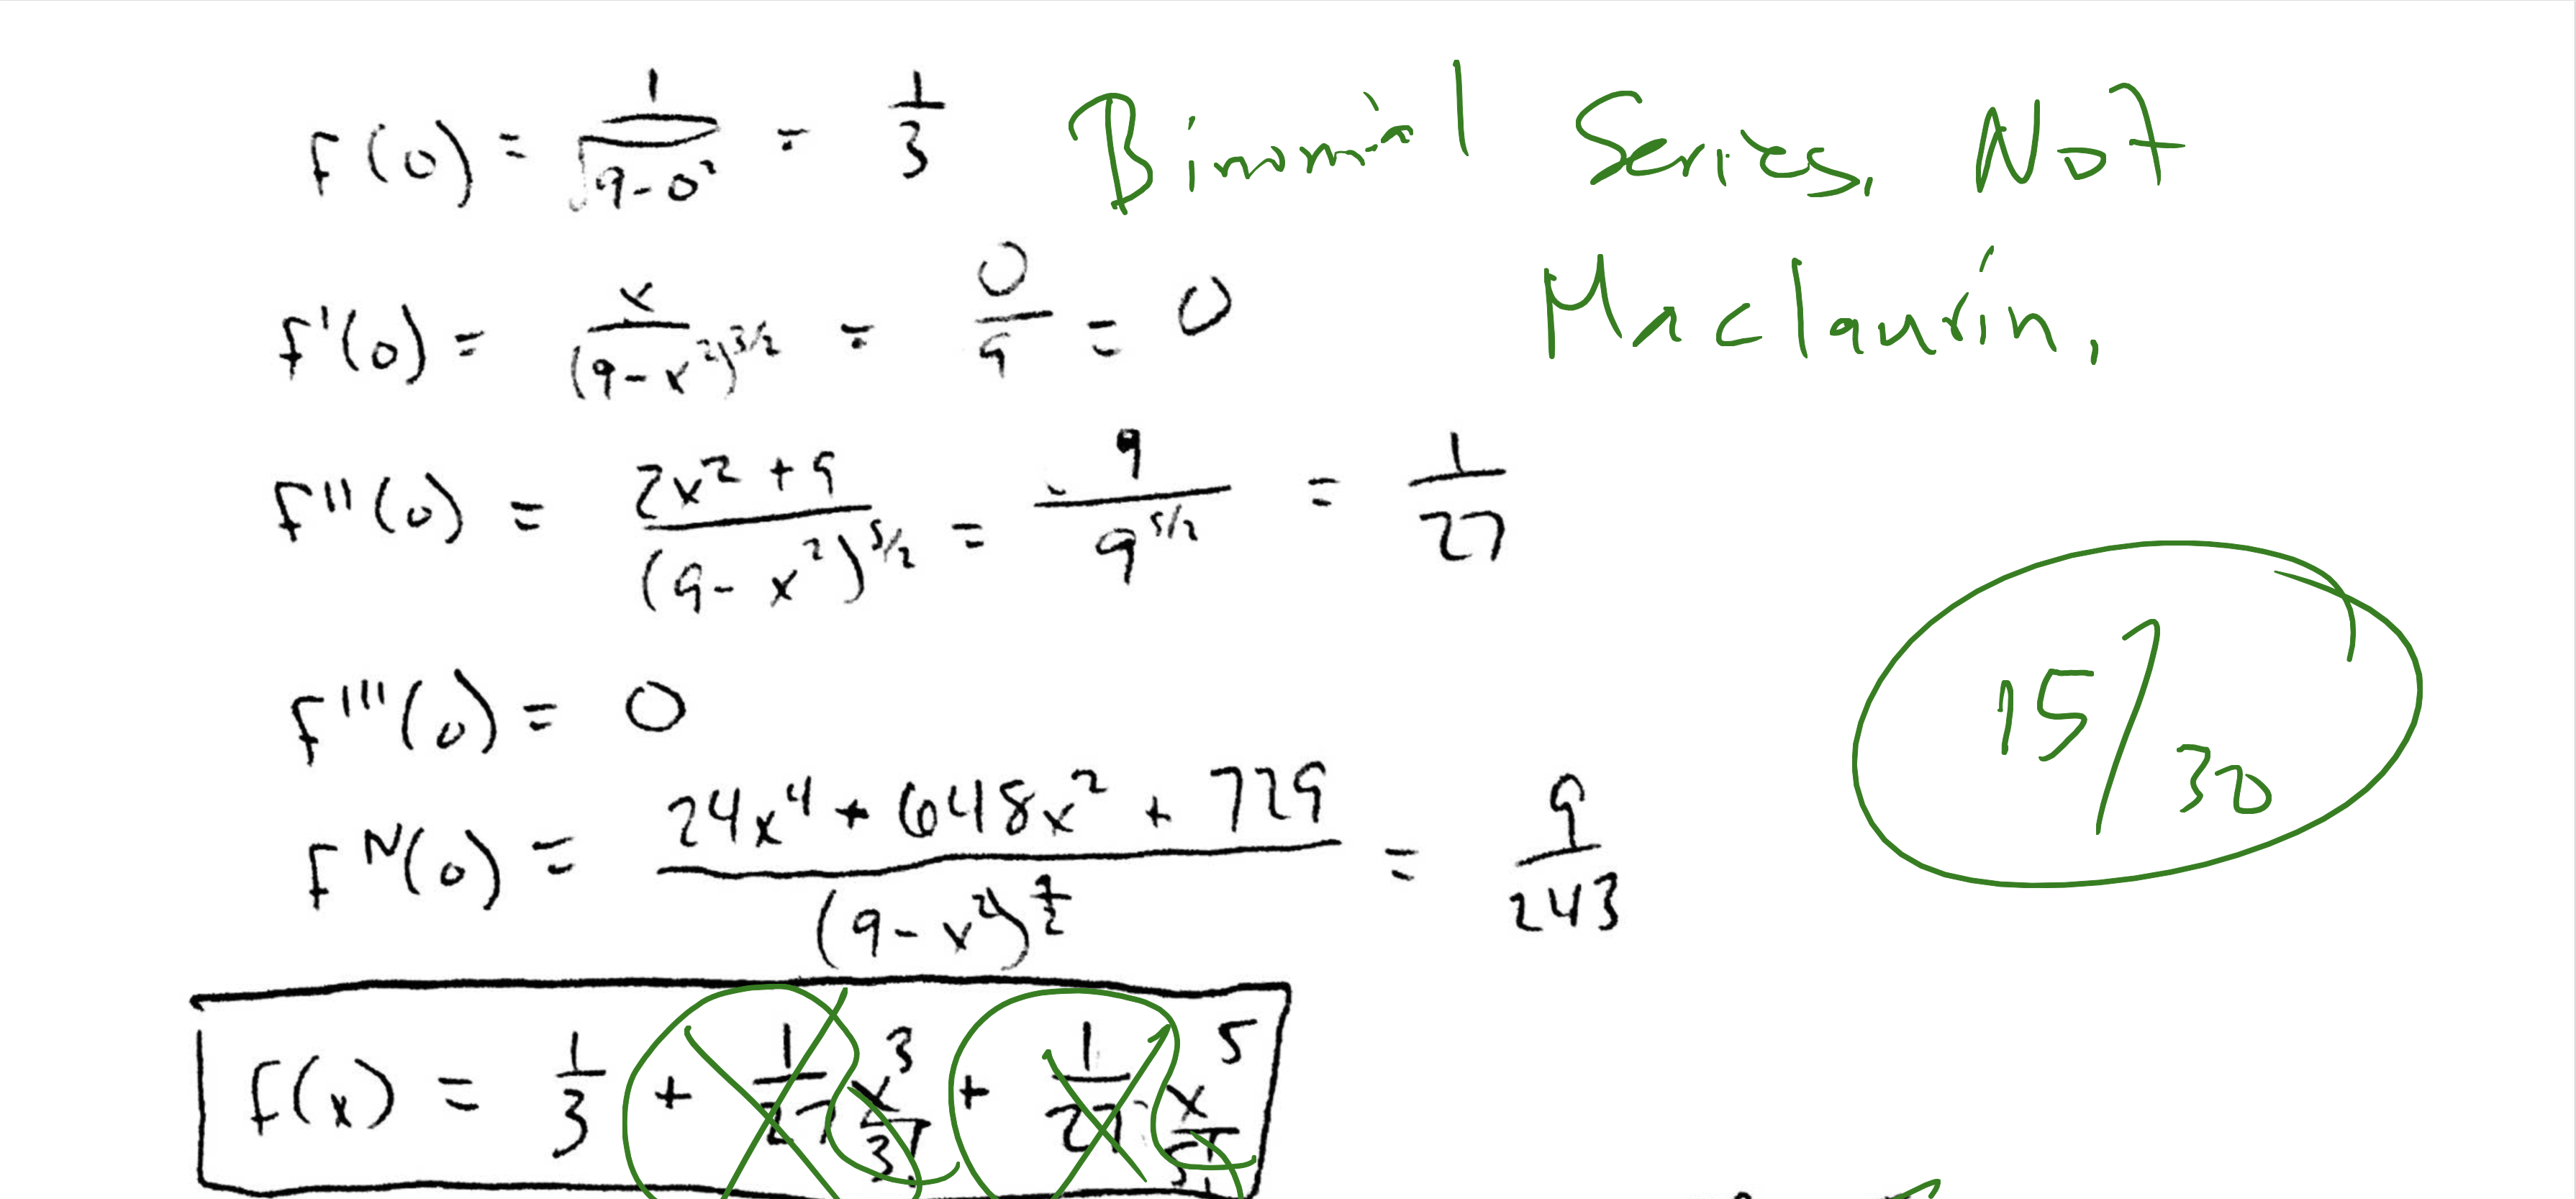 F(0) = 1/√(9-0²) = 1/3 Binomial Series. Not
Maclaurin.
F'(0) = x/(9-x²)^3/2 = 0/9 = 0
F''(0) = 2x² + 9/(9-x²)^5/2 = 9/9^5/2 = 1/27
F'''(0) = 0
15/30
F^IV(0) = 24x⁴ + 648x² + 729/(9-x²)^9/2 = 9/243
F(x) = 1/3 + 1/27 x³/3! + 1/27 x⁵/5!